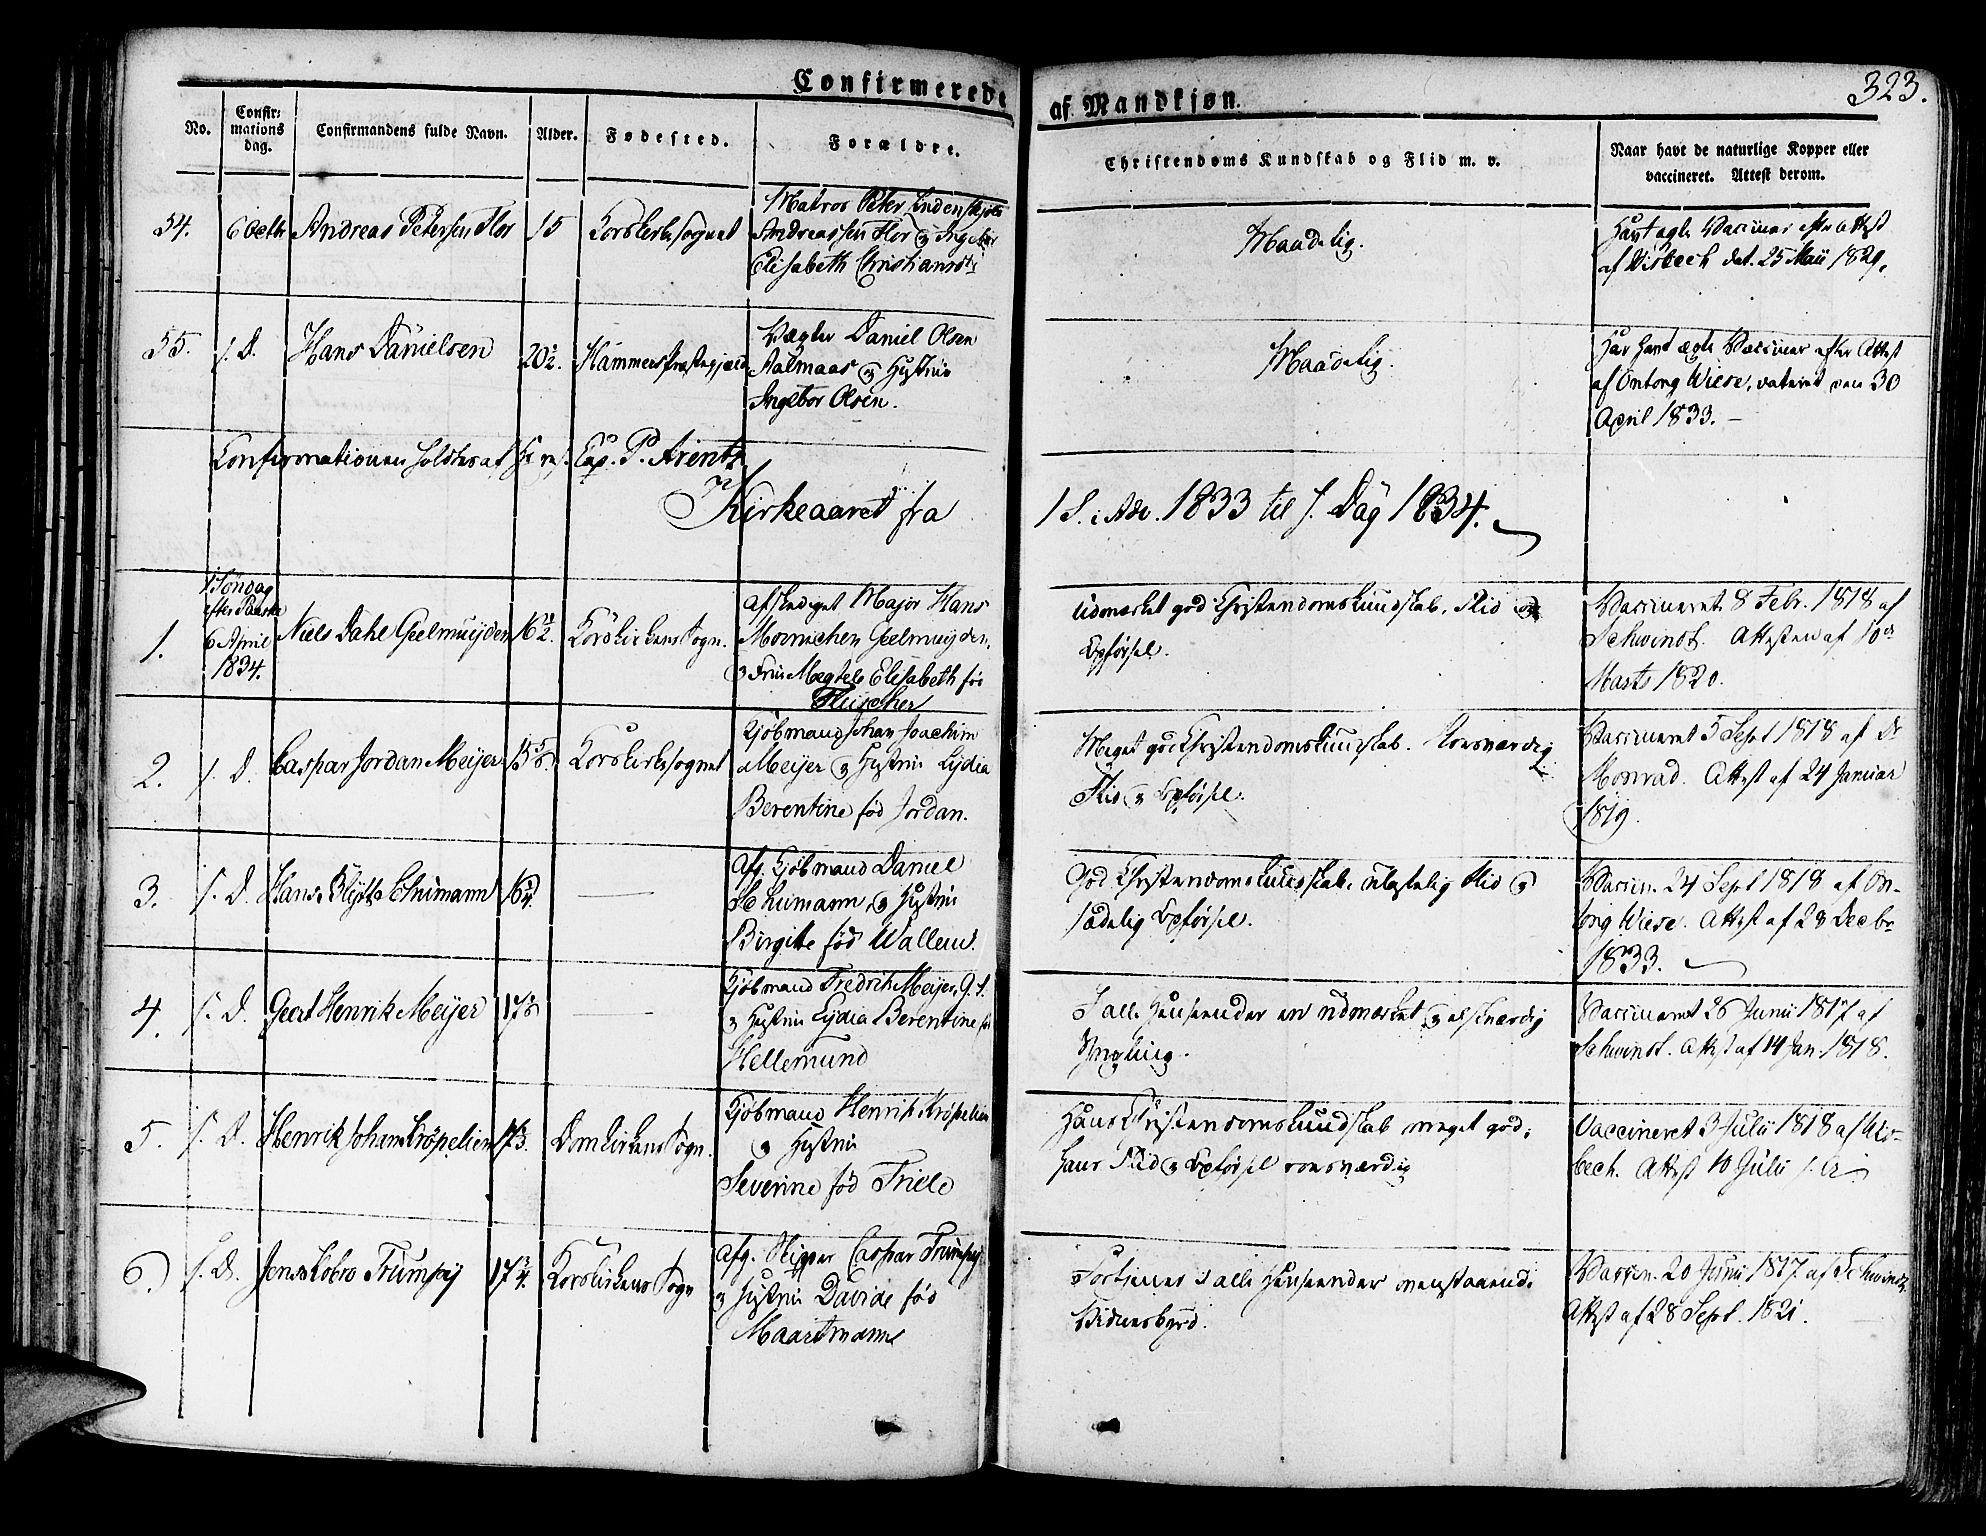 Confirmerede af Mandkjøn.
323.
No.
Confir-
mations
dag.
Confirmandens fulde Navn.
Alder.
Fødested.
Forældre.
Christendoms Kundskab og Flid m. v.
Naar havt de naturlige Kopper eller
vaccineret. Attest derom.
54.
6 Octb
Andreas Petersen Flor
15
Korskirkesognet
Matros Peter
Andreassen Flor og Ingebor
Elisabeth Christiansdt
Maadelig.
Havt ægte Vacciner efter Attest
af Wisbech dat. 25 Maii 1829.
55.
s. D.
Hans Danielsen
20½.
Hammers Præstegjæld
Vægter Daniel Olsen
Aalmaas og Hustrue
Ingebor Olsen.
Maadelig.
Har havt ægte Vacciner efter Attest
af Ontong Wiese, dateret den 30
April 1833. –
Confirmationen holdtes af Hr. res. Cap. P. Arentz
Kirkeaaret fra 1 S. i Adv. 1833 til s. Dag 1834.
1.
1 Søndag
efter Paaske
6 April
1834.
Niels Dahl Geelmuijden
16
Korskirkens Sogn.
afskediget Major Hans
Mornichen Geelmuijden,
og Frue Magtele Elisabeth fød
Fleischer
Udmærket god Christendomskundskab, Flid og
Opførsel.
Vaccineret 8 Febr. 1818 af
Schwindt. Attesten af 10de
Marts 1820.
2.
s. D.
Caspar Jordan Meijer
15
Korskirkesognet
Kjøbmand Johan Joachim
Meijer og Hustrue Lydia
Berentine fød Jordan.
Meget god Christendomskundskab. Roesværdig
Flid og Opførsel.
Vaccineret 5 Sept 1818 af Dr
Monrad. Attest af 24 Januar
1819.
3.
s. D.
Hans Blytt Schumann
16¼
———
Afg. Kjøbmand Daniel
Schumann, og Hustrue
Birgitte fød Wallem.
God Christendomskundskab, ulastelig Flid og
sædelig Opførsel.
Vaccin. 24 Sept 1818 af On-
tong Wiese. Attest af 28 Decbr
1833.
4.
s. D.
Geert Henrik Meijer
17
———
Kjøbmand Fredrik Meijer, G. S.
og Hustrue Lydia Berentine fød
Hellemund
I alle Henseender en udmærket og elskværdig
Yngling.
Vaccineret 26 Junii 1817 af
Schwindt. Attest af 14 Jan. 1818.
5.
s. D.
Henrik Johan Krøpelien
17
Domkirkens Sogn.
Kjøbmand Henrik Krøpelien
og Hustrue
Severine fød Friele
Hans Christendomskundskab meget god;
hans Flid og Opførsel roesværdig
Vaccineret 3 Julii 1818 af Wis-
bech. Attest 10 Julii
6.
s. D.
Jens Lobro Trumpÿ
17¾
Korskirkens Sogn
Afg. Skipper Caspar Trumpÿ
og Hustrue Davide fød
Maartmann
Fortjener i alle Henseender ovenstaaende
Vidnesbyrd.
Vaccin. 20 Junii 1817 af Schwindt.
Attest af 28 Sept. 1821.